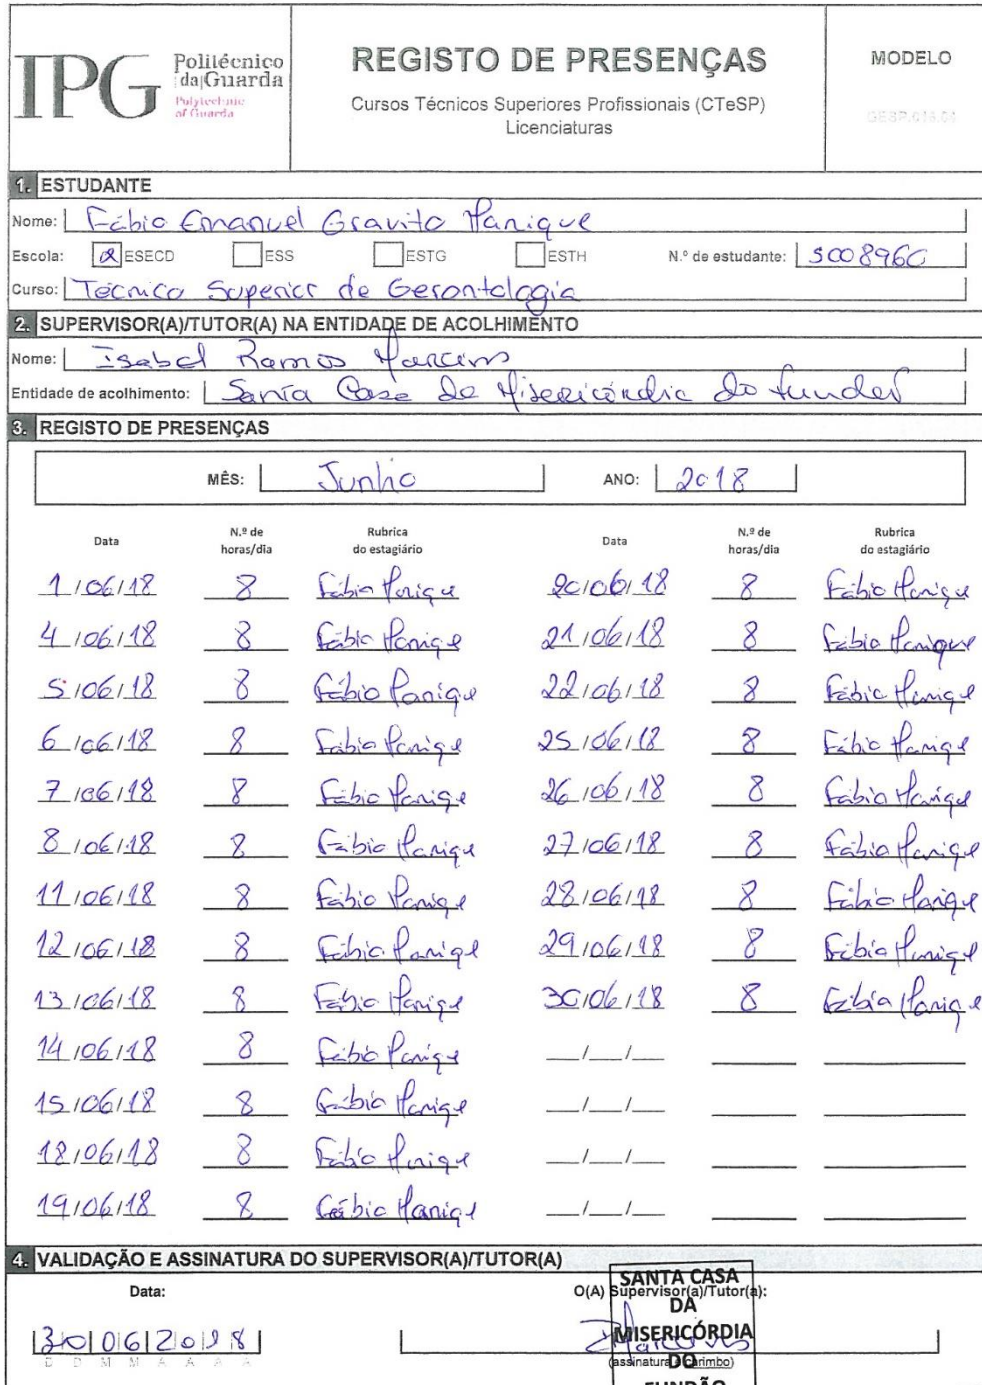 IPG Politécnico da Guarda
Polytechnic of Guarda
REGISTO DE PRESENÇAS
Cursos Técnicos Superiores Profissionais (CTeSP)
Licenciaturas
MODELO
GESP.018.01
1. ESTUDANTE
Nome: Fábio Emanuel Gravito Manique
Escola: ESECD ESS ESTG ESTH N.º de estudante: 5008960
Curso: Tecnico Superior de Gerontologia
2. SUPERVISOR(A)/TUTOR(A) NA ENTIDADE DE ACOLHIMENTO
Nome: Isabel Ramos
Entidade de acolhimento: Santa Casa da Misericórdia do Fundão
3. REGISTO DE PRESENÇAS
MÊS: Junho ANO: 2018
Data N.º de horas/dia Rubrica do estagiário Data N.º de horas/dia Rubrica do estagiário
1/06/18 8 Fábio Manique 20/06/18 8 Fábio Manique
4/06/18 8 Fábio Manique 21/06/18 8 Fábio Manique
5/06/18 8 Fábio Manique 22/06/18 8 Fábio Manique
6/06/18 8 Fábio Manique 25/06/18 8 Fábio Manique
7/06/18 8 Fábio Manique 26/06/18 8 Fábio Manique
8/06/18 8 Fábio Manique 27/06/18 8 Fábio Manique
11/06/18 8 Fábio Manique 28/06/18 8 Fábio Manique
12/06/18 8 Fábio Manique 29/06/18 8 Fábio Manique
13/06/18 8 Fábio Manique 30/06/18 8 Fábio Manique
14/06/18 8 Fábio Manique __/__/__
15/06/18 8 Fábio Manique __/__/__
18/06/18 8 Fábio Manique __/__/__
19/06/18 8 Fábio Manique __/__/__
4. VALIDAÇÃO E ASSINATURA DO SUPERVISOR(A)/TUTOR(A)
Data: O(A) Supervisor(a)/Tutor(a):
30062018
D D M M A A A A
(assinatura e carimbo)
SANTA CASA
DA
MISERICÓRDIA
DO
FUNDÃO